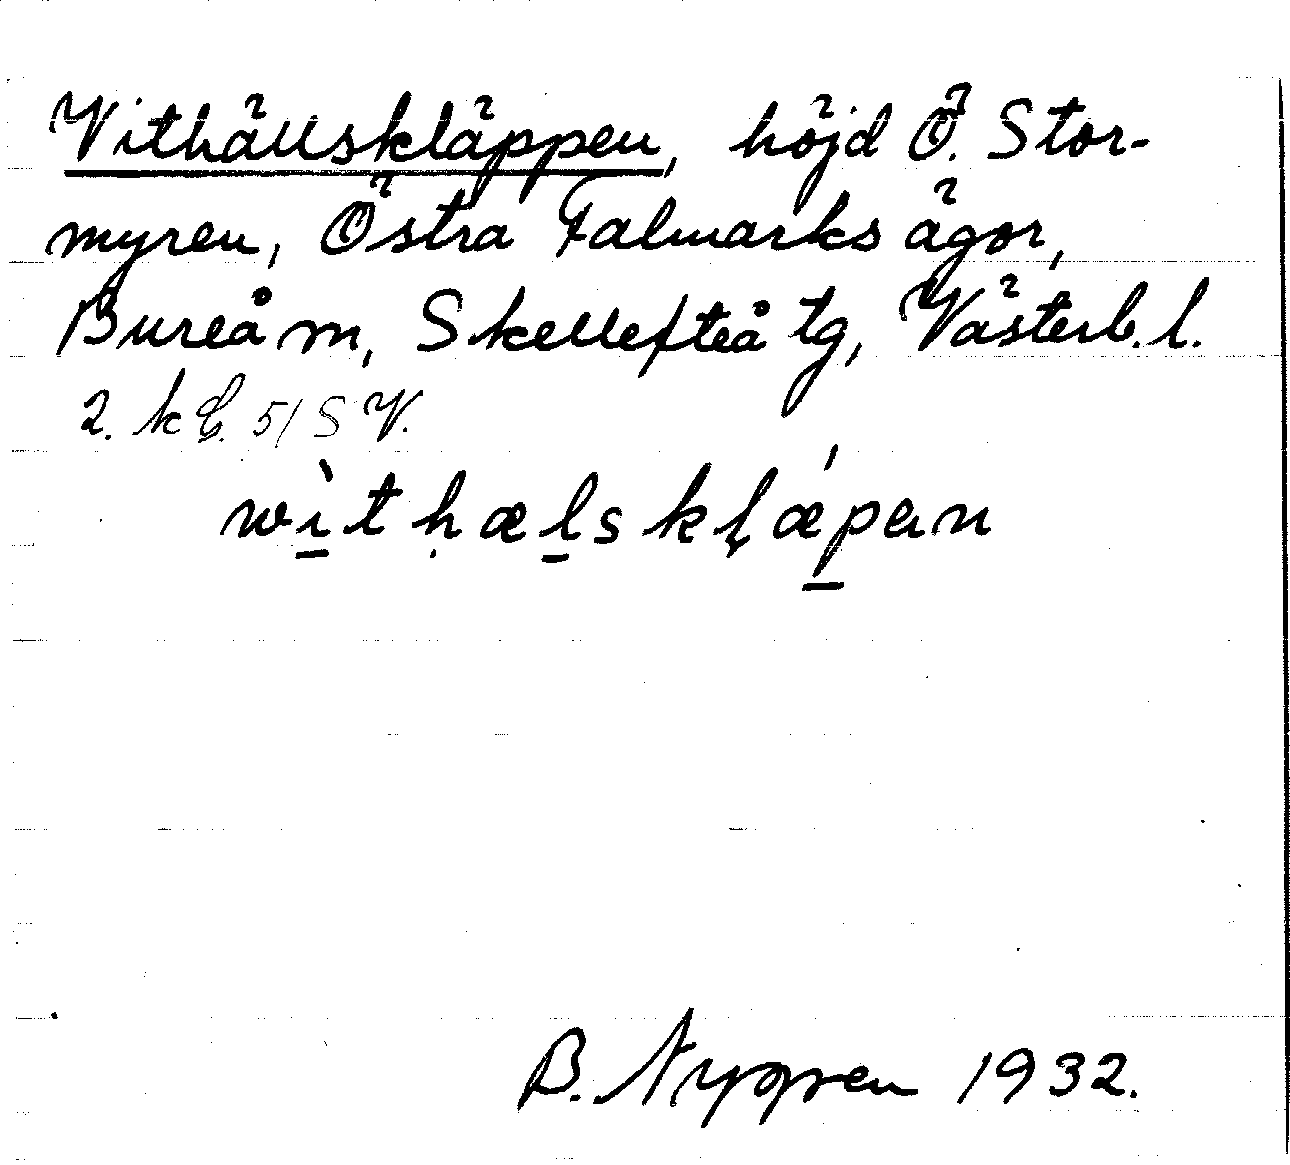 Vithällskläppen, höjd Ö. Stor-
myren, Östra Falmarks ägor,
Bureå m, Skellefteå tg, Västerb. l.
2. k 51 SV.
wìthælskḷæ´pan
B. Nygren 1932.